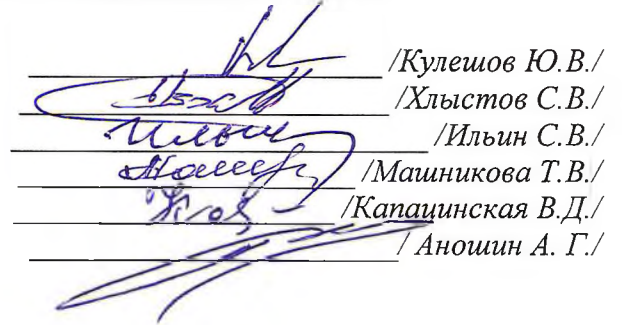 /Кулешов Ю.В./
/Хлыстов С.В./
Ильин /Ильин С.В./
/Машникова Т.В./
/Капацинская В.Д./
/ Аношин А. Г./